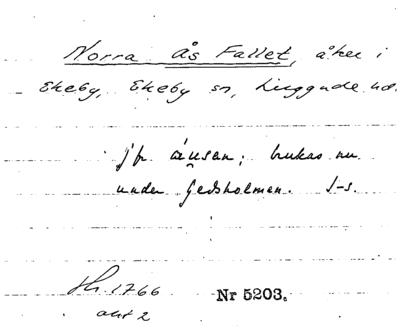 Norra Ås Fallet, åker i
Ekeby, Ekeby sn, Luggude hd.
jfr åusen; brukas nu
under Gedsholmen. S-s.
Hr. 1766 Nr 5203.
akt 2